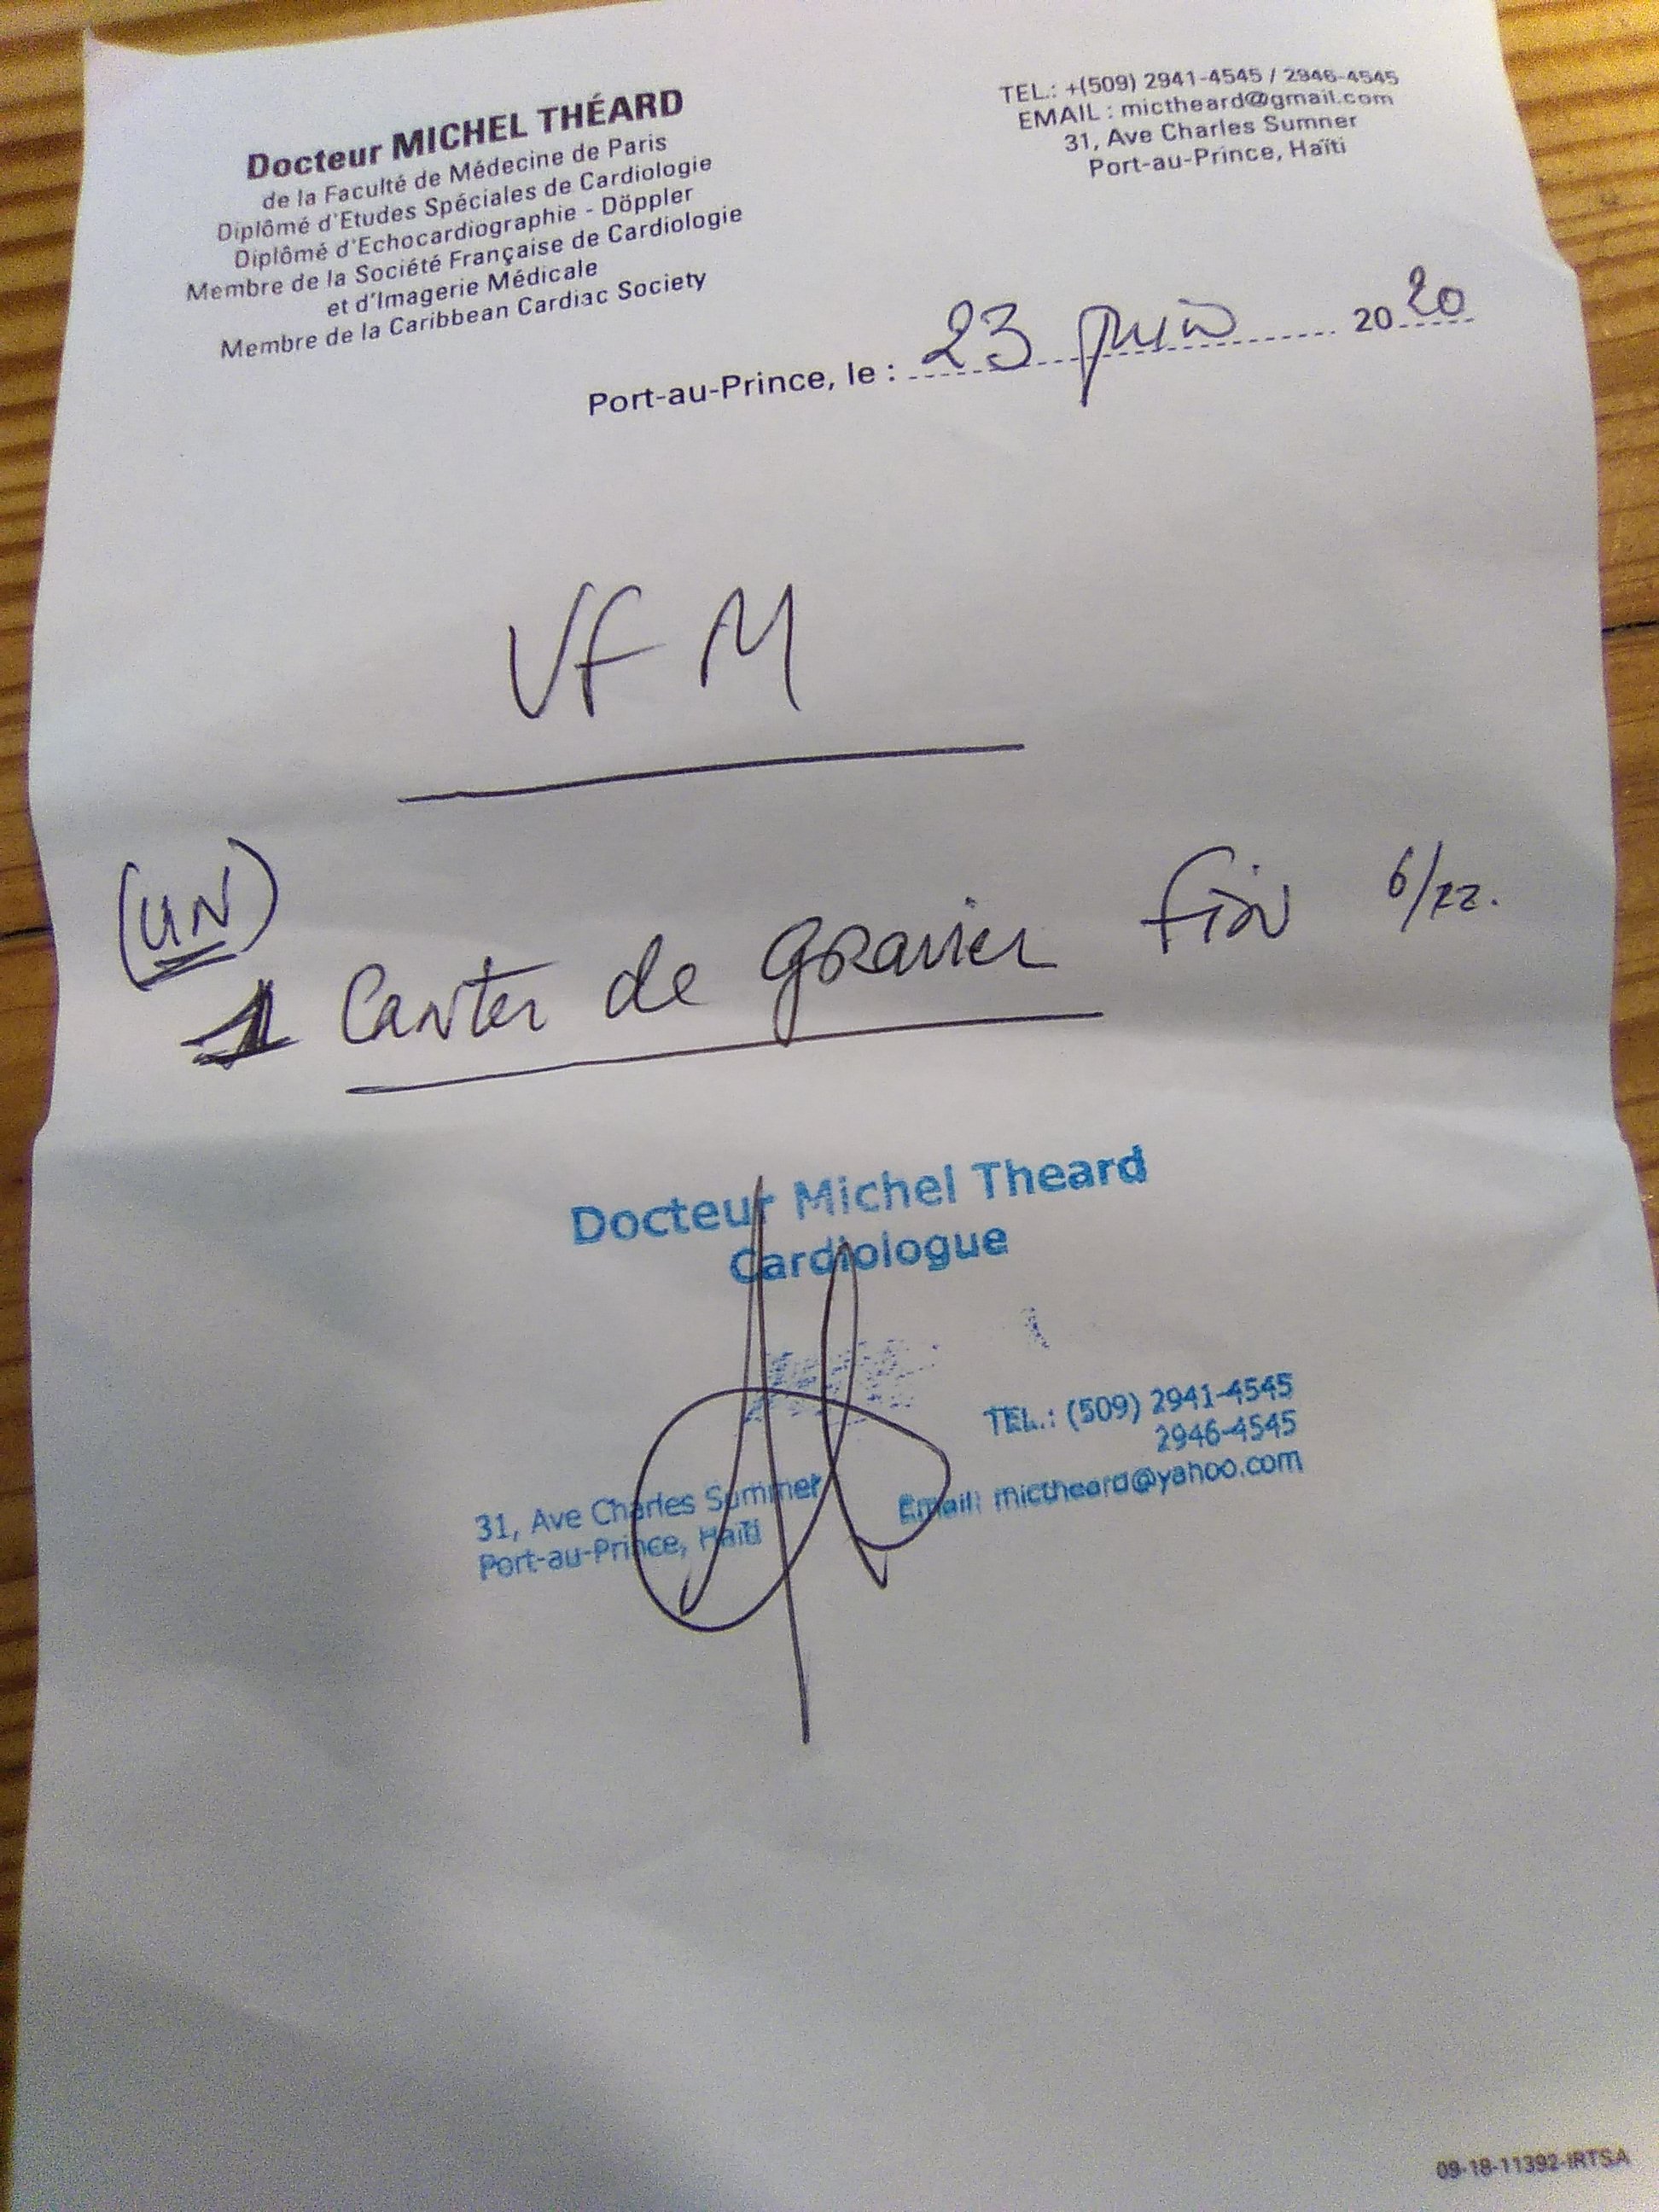 Docteur MICHEL THÉARD
de la Faculté de Médecine de Paris
Diplômé d'Etudes Spéciales de Cardiologie
Diplômé d'Echocardiographie - Döppler
Membre de la Société Française de Cardiologie
et d'Imagerie Médicale
Membre de la Caribbean Cardiac Society
TEL.: +(509) 2941-4545 / 2946-4545
EMAIL : mictheard@gmail.com
31, Ave Charles Sumner
Port-au-Prince, Haïti
Port-au-Prince, le : 23 juin 2020
VFM
(UN)
1 Canter de gravier fin 6/22.
Docteur Michel Theard
Cardiologue
TEL.: (509) 2941-4545
2946-4545
Email: mictheard@yahoo.com
31, Ave Charles Summer
Port-au-Prince, Haïti
09-18-11392-IRTSA